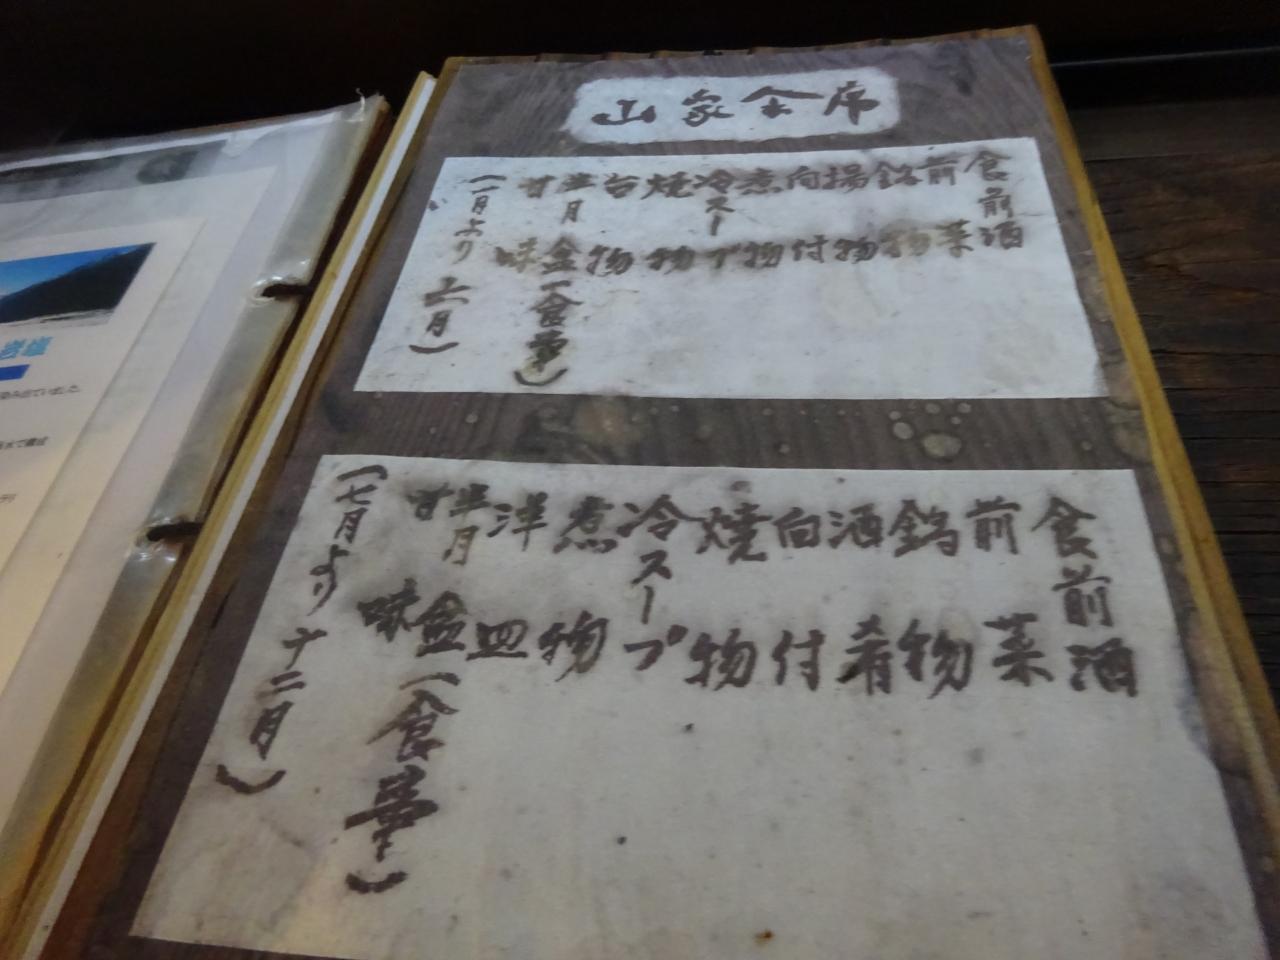 山家会席
食前酒
前菜
鉢物
揚物
向付
煮物
冷スープ
焼物
台物
半月盆(食事)
甘味
(一月より六月)
食前酒
前菜
鉢物
酒肴
向付
焼物
冷スープ
煮物
洋皿
半月盆(食事)
甘味
(七月より十二月)
岩塩